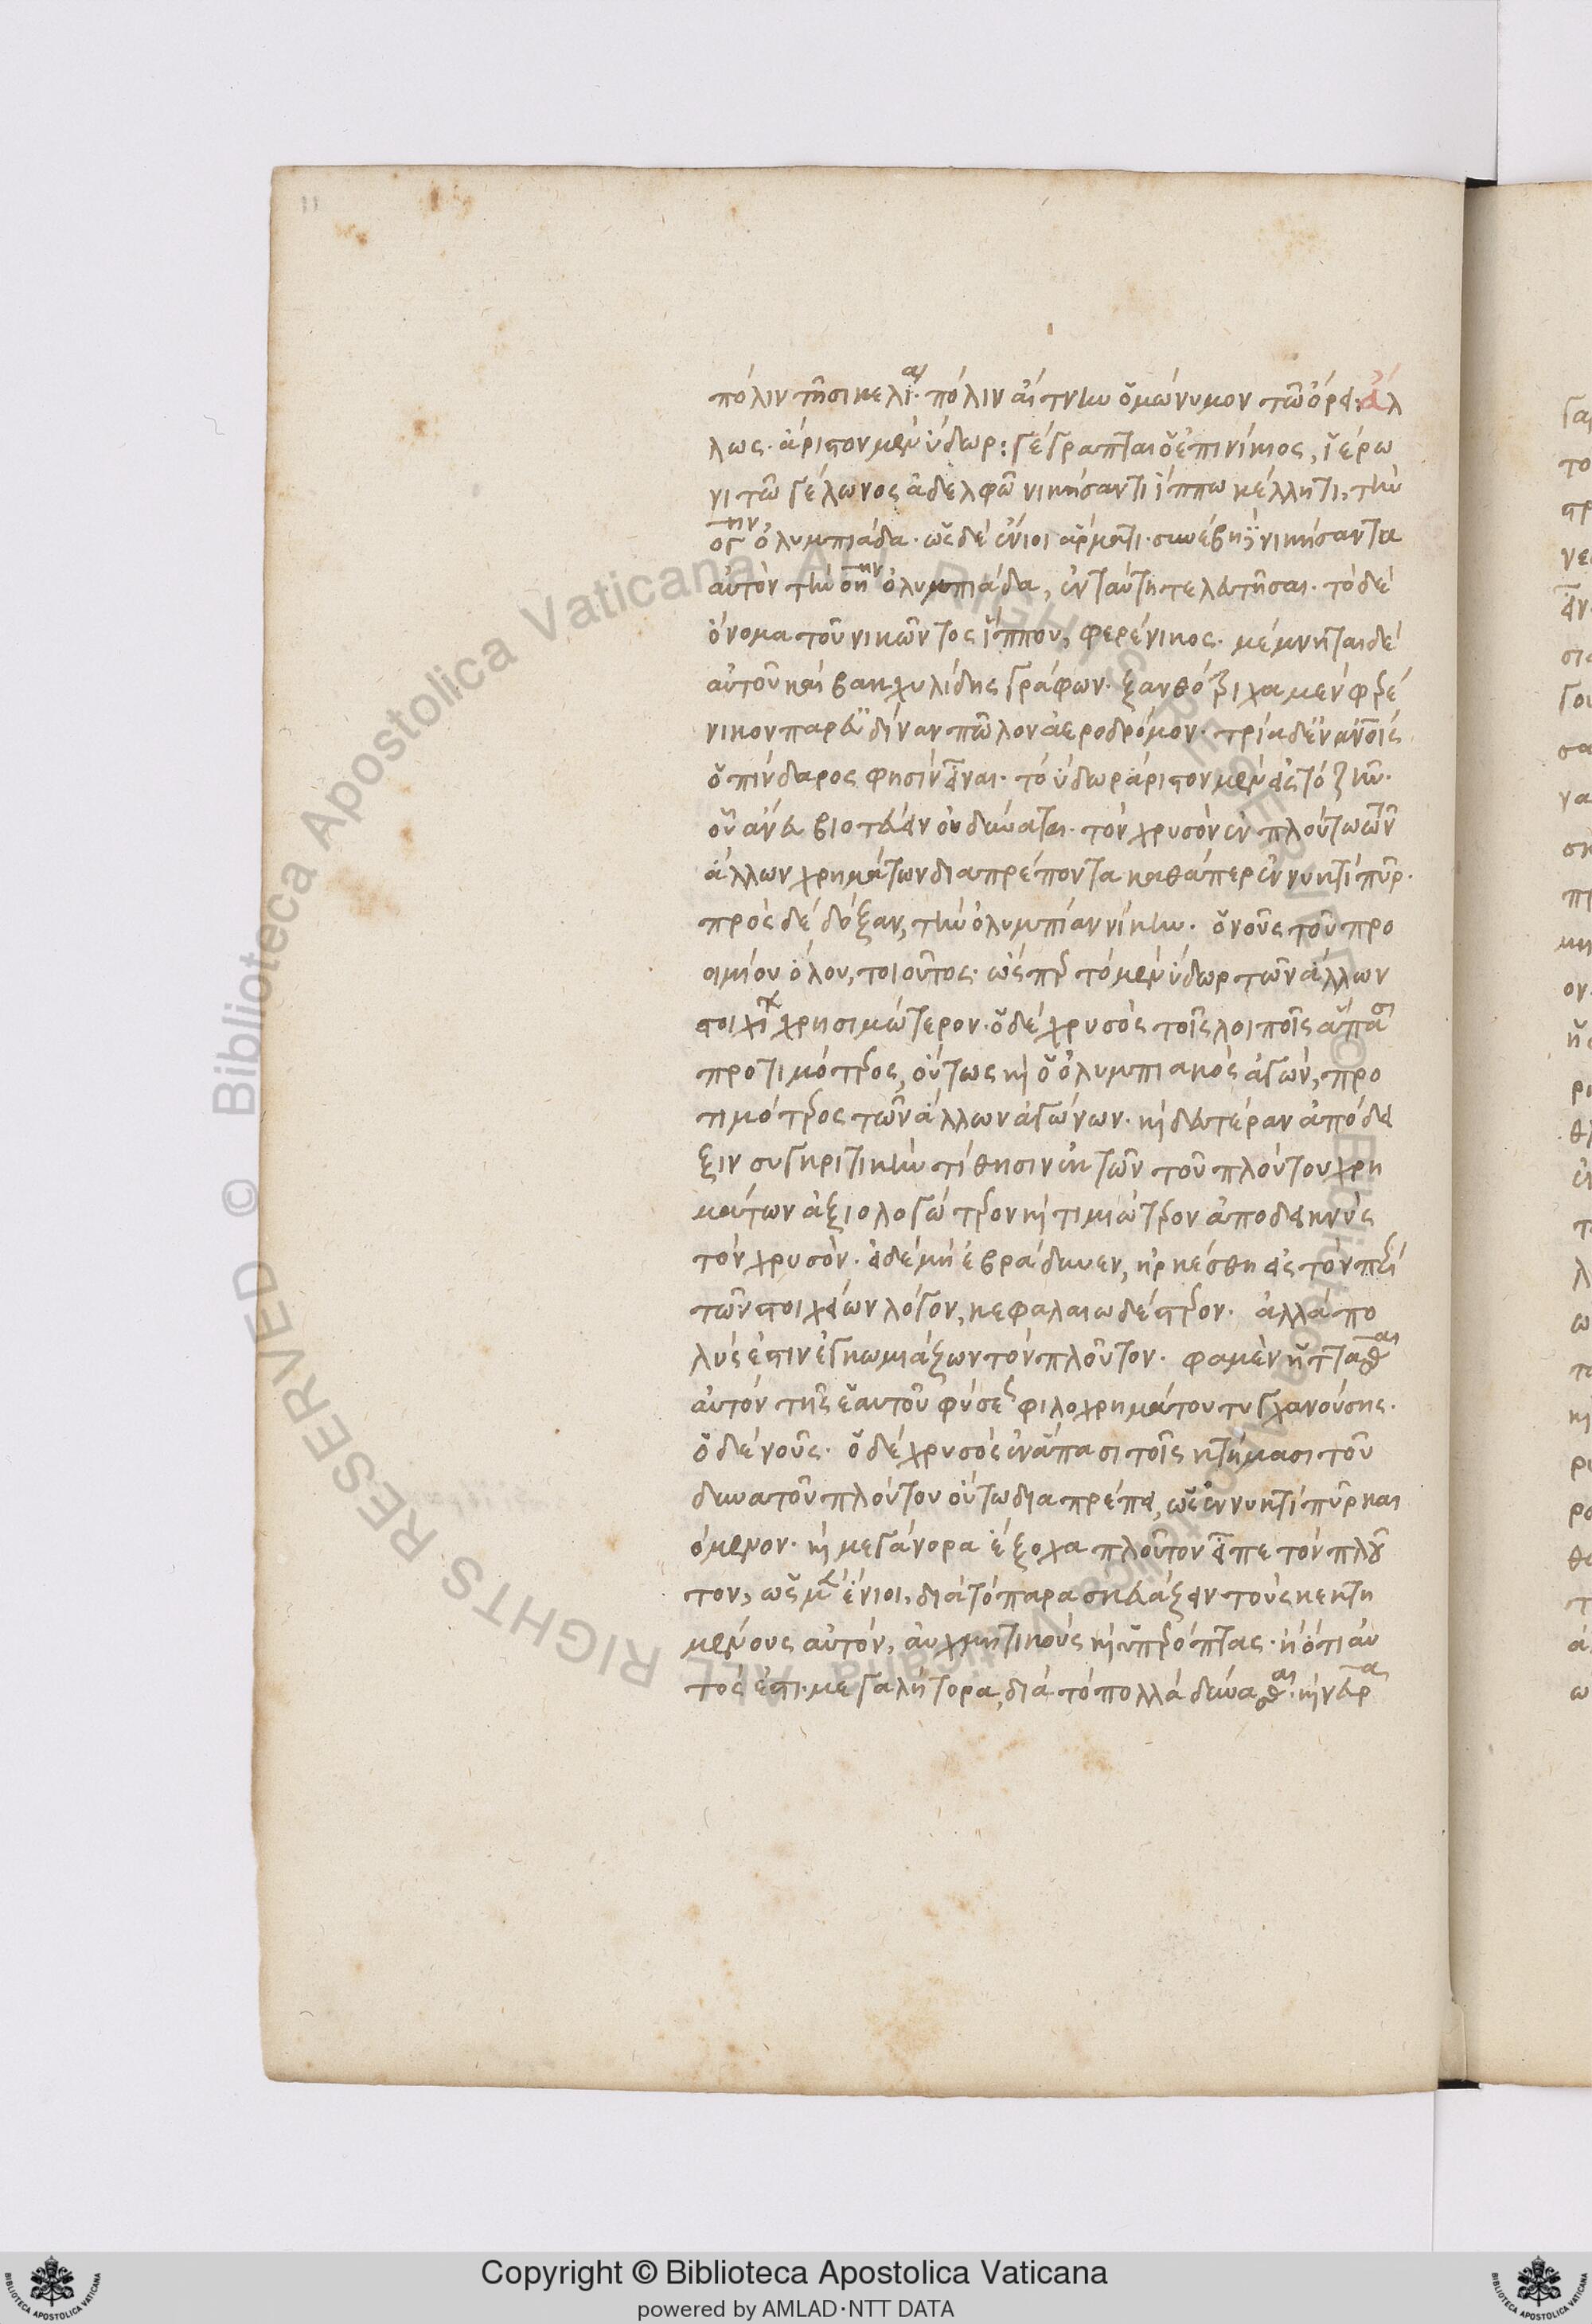 11
πόλιν τῆς σικελίας. πόλιν αἴτνην ὁμώνυμον τῶ ὄρει. ἄλ
λως. ἄριστον μὲν ὕδωρ: γέγραπται ὁ ἐπινίκιος, ἱέρω
νι τῶ γέλωνος ἀδελφῶ νικήσαντι ἵππω κέλλητι, τὴν
ογ την ὀλυμπιάδα. ὡς δὲ ἔνιοι ἅρματι. συνέβη νικήσαντα
αὐτὸν τὴν οη ην ὀλυμπιάδα, ἐνταύτη τελευτῆσαι. τὸ δὲ
ὄνομα τοῦ νικῶντος ἵππου, φερένικος. μέμνηται δὲ
αὐτοῦ καὶ βακχυλίδης γράφων. ξανθότριχα μὲν φερέ
νικον παρ' εὐδίναν πῶλον ἀεροδρόμον. τρία δὲ
ὁ πίνδαρος φησὶν εἶναι. τὸ ὕδωρ ἄριστον μὲν εἰς τὸ ζῆν.
οὗ ἄνευ βιοτεύειν οὐ δύναται. τὸν χρυσὸν ἐν πλούτω τῶν
ἄλλων χρημάτων διαπρέποντα καθάπερ ἐν νυκτὶ πῦρ.
πρὸς δὲ δόξαν, τὴν ὀλυμπίαν νίκην. ὁ νοῦς τοῦ προ
οιμίου ὅλου, τοιοῦτος. ὥσπερ τὸ μὲν ὕδωρ τῶν ἄλλων
στοιχείων χρησιμώτερον. ὁ δὲ χρυσὸς τοῖς λοιποῖς ἅπασι
προτιμότερος, οὕτως καὶ ὁ ὀλυμπιακὸς ἀγών, προ
τιμότερος τῶν ἄλλων ἀγώνων. καὶ δευτέραν ἀπόδει
ξιν συγκριτικὴν τίθησιν ἐκ τῶν τοῦ πλούτου χρη
μάτων ἀξιολογώτερον καὶ τιμιώτερον ἀποδεικνὺς
τὸν χρυσόν. εἰ δὲ μὴ ἐβράδυνεν, ἠρκέσθη εἰς τὸν περὶ
τῶν στοιχείων λόγον, κεφαλαιωδέστερον. ἀλλὰ πο
λύς ἐστιν ἐγκωμιάζων τὸν πλοῦτον. φαμὲν ἡττᾶσθαι
αὐτὸν τῆς ἑαυτοῦ φύσεως φιλοχρημάτου τυγχανούσης.
ὁ δὲ νοῦς. ὁ δὲ χρυσὸς ἐν ἅπασι τοῖς κτήμασι τοῦ
δυνατοῦ πλούτου οὕτω διαπρέπει, ὡς ἐν νυκτὶ πῦρ και
όμενον. καὶ μεγάνορα ἔξοχα πλοῦτον εἶπε τὸν πλοῦ
τον, ὡς μὲν ἔνιοι, διὰ τὸ παρασκευάζειν τοὺς κεκτη
μένους αὐτόν, αὐχμητικοὺς καὶ ὑπερόπτας. ἢ ὅτι αὐ
τός ἐστι. μεγαλήτορα, διὰ τὸ πολλὰ δύνασθαι. καὶ νεῦρα